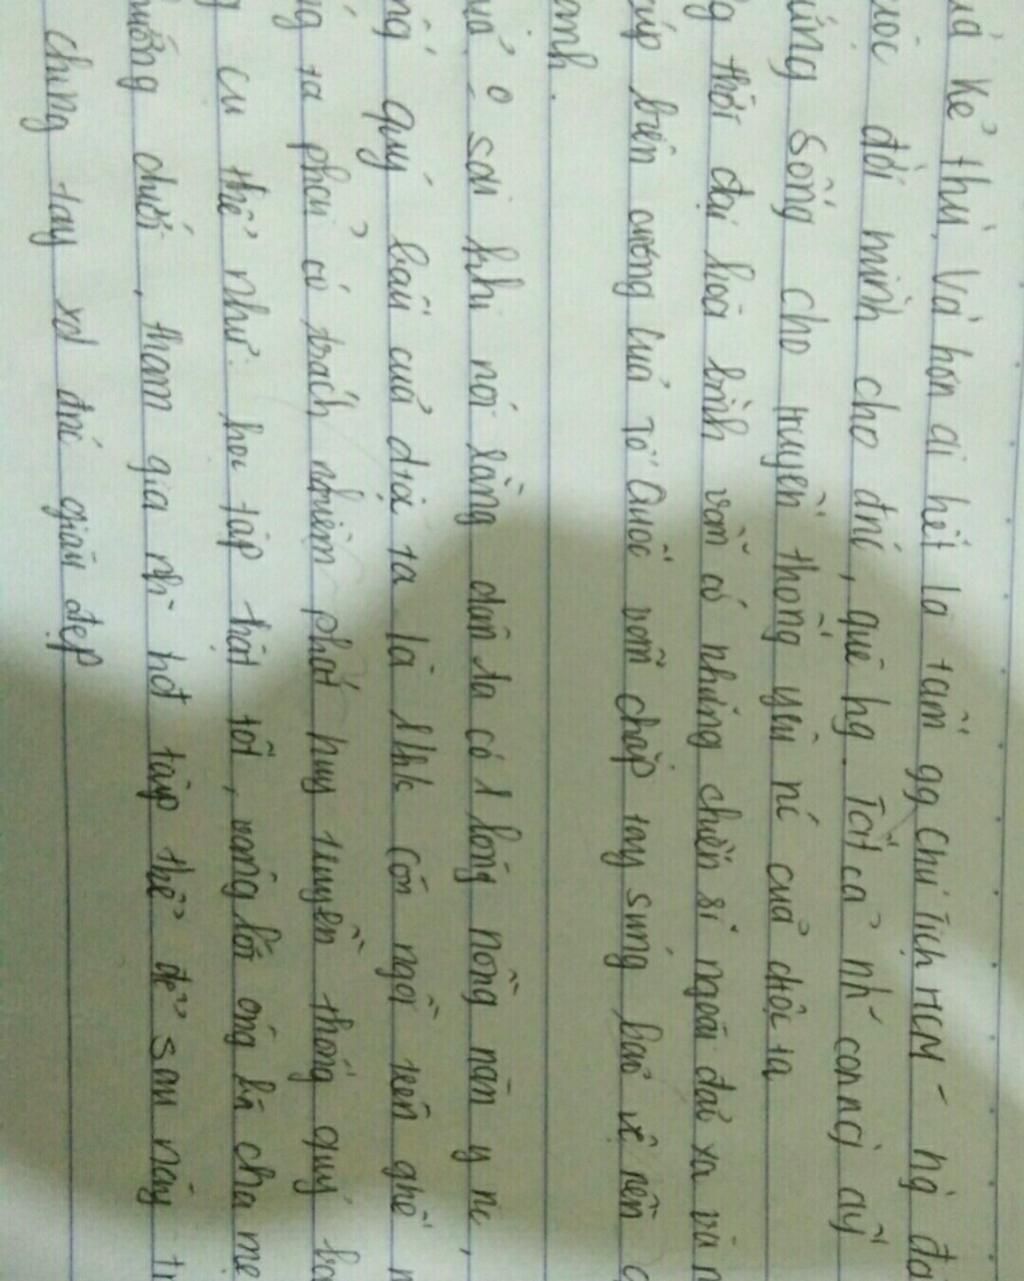 kẻ thù. Và hơn ai hết là tấm gg chủ Tịch HCM - ng
đời mình cho đnc, quê hg. Tất cả nh~ con ng ấy
sống cho truyền thống yêu nc của dtộc ta
thời đại hoà bình vẫn có những chiến sĩ ngoài đảo xa và
biên cương của Tổ Quốc vẫn chắp tay súng bảo vệ nền
o sai khi nói rằng dân ta có 1 lòng nồng nàn y nc,
quý báu của dtộc ta là
ta phải có trách nhiệm phát huy truyền thống quý
cụ thể như: học tập thật tốt, vâng lời ông bà cha mẹ
dưới, tham gia nh~ hđ tập thể để sau này
chung tay xd đnc giàu đẹp